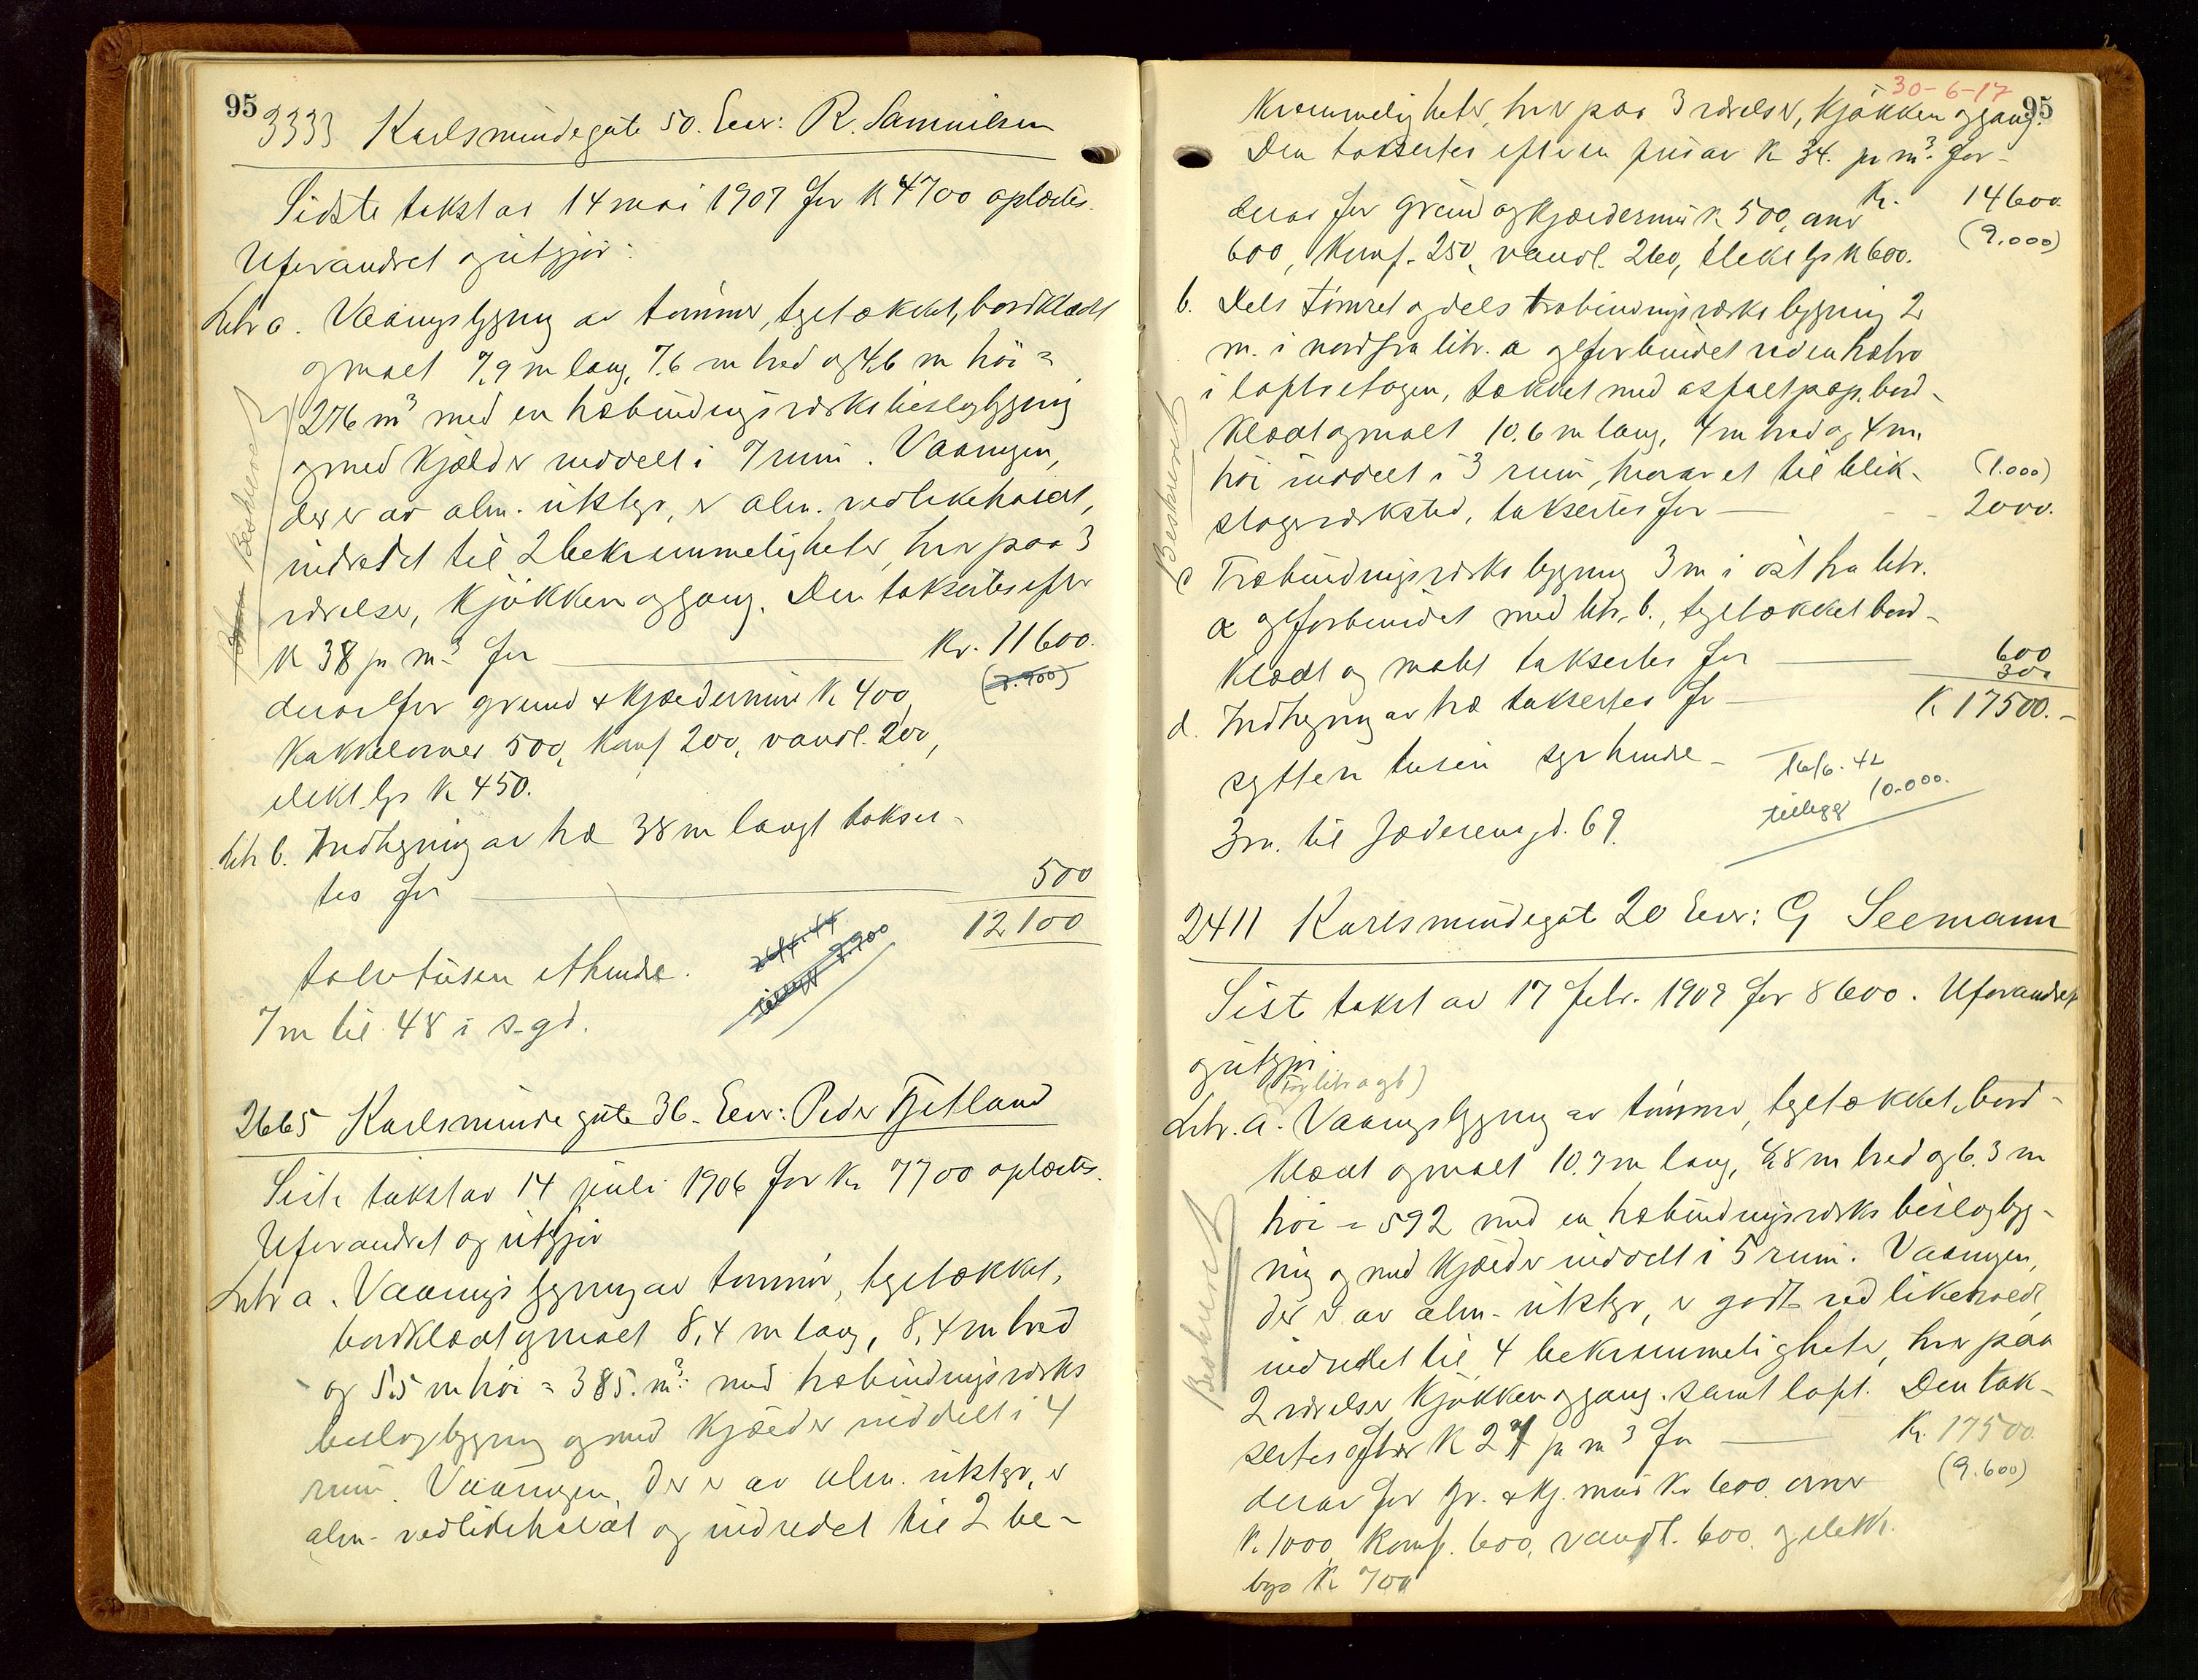 95
3333 Karlsmindegate 50. Eier: R. Samuelsen
Sidste takst av 14 mai 1907 for K 4700 oplæstes.
Uforandret og utgjør:
Litr a. Vaaningsbygning av tømmer, teglstækket, bordklædt
og malt 7,9 m lang, 7.6 m bred og 4,6 m høi =
276 m³ med en træbindingsverks bislagbygning
og med kjælder inddelt i 7 rum. Vaaningen,
der er av alm. utstyr, er alm. vedlikeholdt,
indredet til 2 bekvemmeligheter, hver paa 3
værelser, kjøkken og gang. Den takseres efter
K 38 pr m³ for — Kr. 11600.
(7.900)
derav for grund & kjældermur K 400,
Kakkelovner 500, Komf 200, vandl. 200,
elekt lys K 450.
Litr b. Indhegning av træ 38 m langt takser-
tes for — 500
12100
tolvtusen ethundre.
26/4.44
tillegg 7.900
7 m til 48 i s. gd.
Beskrevet
2665 Karlsminde gate 36. Eier: Peder Tjetland
Siste takst av 14 juli 1906 for Kr. 7700 oplæstes.
Uforandret og utgjør
Litr a. Vaaningsbygning av tømmer, teglstækket,
bordklædt og malt 8,4 m lang, 8,4 m bred
og 5.5 m høi = 385. m³: med træbindingsverks
bislagbygning og med kjælder inddelt i 4
rum. Vaaningen, der er av alm. utstyr, er
alm. vedlikeholdt og indredet til 2 be-
30-6-17
95
kvemmeligheter, hver paa 3 værelser, kjøkken og gang.
Den takseres efter en pris av K 34. pr m³. for-
Kr. 14600.
derav for grund og kjældermur K 500, ovner
(9.000)
600, Komf. 250, vandl. 260, Elekt lys K 600.
b. Dels tømret og dels træbindingsverks bygning 2
m. i nord fra litr. a og forbundet ved en trætro
i loftsetagen, tækket med asfaltpap, bord-
klædt og malt 10.6 m lang, 4 m bred og 4 m.
høi inddelt i 3 rum, hvorav et til blik-
(1.000)
slagerverksted, takseres for — 2000.
c Træbindingsverks bygning 3 m i øst fra litr.
a og forbundet med litr. b., teglstækket bord-
klædt og malt takseres for — 600
d. Indhegning av træ takseres for — 300
K 17500.-
sytten tusen syv hundre-
16/6. 42
tillegg 10.000.
3 m. til Jæderensgd. 69.
Beskrevet
2411 Karlsmindegate 20 Eier: G Seemann
Siste takst av 17 febr. 1909 for 8600. Uforandret
og utgjør
(For litr a og b)
Litr. a. Vaaningsbygning av tømmer, teglstækket, bord-
klædt og malt 10.7 m lang, 8,8 m bred og 6.3 m
høi = 592 med en træbindingsverks bislagbyg-
ning og med kjælder inddelt i 5 rum. Vaaningen,
der er av alm. utstyr, er godt vedlikeholdt,
indredet til 4 bekvemmeligheter, hver paa
2 værelser kjøkken og gang. samt loft. Den tak-
seres efter K 27 pr m³ for — Kr. 17500.
(9.600)
derav for gr. & kj. mur Kr 600. ovner
K. 1000, Komf. 600, vandl. 600. og elektr.
lys K 700
Beskrevet